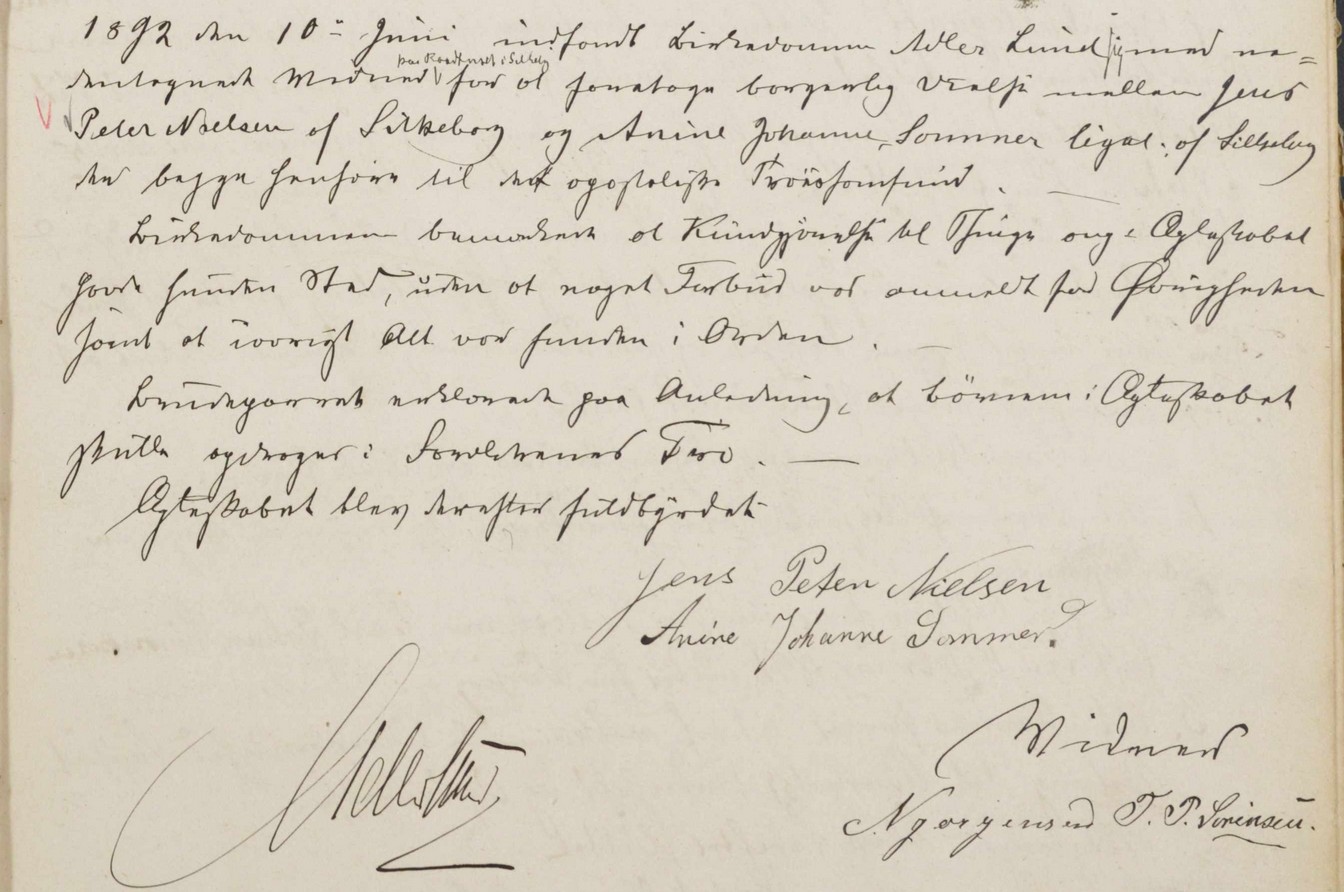 1892 den 10de Juni indfandt Birkedommer Adler Lund sig med ne=
dentegnede Vidner paa Raadhuset i Silkeborg for at foretage borgerlig Vielse mellem Jens
Peter Nielsen af Silkeborg og Anine Johanne Sommer ligel. af Silkeborg
der begge henhøre til det apostoliske Troessamfund.
Birkedommeren bemærkede at Kundgjørelse til Thinge ang: Ægteskabet
havde funden Sted, uden at noget Forbud var anmeldt for Øvrigheden
samt at iøvrigt Alt var funden i Orden. —
Brudeparret erklærede paa Anledning, at Børnene i Ægteskabet
skulle opdrages i Forældrenes Tro. —
Ægteskabet blev derefter fuldbyrdet
Jens Peter Nielsen
Anine Johanne Sommer.
Adler Lund
Vidner
N Jørgensen T. P. Sørensen.